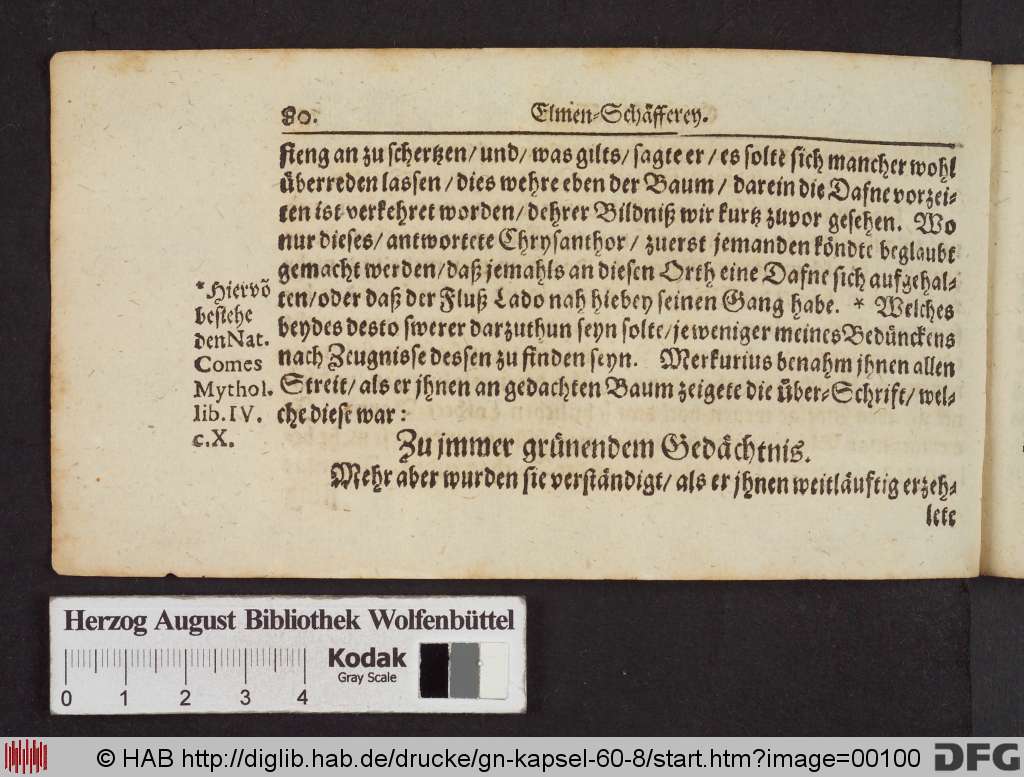 80. Elmen-Schäfferey.
fieng an zu schertzen/ und/ was gilts/ sagte er/ es solte sich mancher wohl
überreden lassen/ dies wehre eben der Baum/ darein die Dafne vorzei-
ten ist verkehret worden/ dehrer Bildniß wir kurtz zuvor gesehen. Wo
nur dieses/ antwortete Chrysanthor/ zuerst jemanden köndte beglaubt
gemacht werden/ daß jemahls an diesen Orth eine Dafne sich aufgehal-
ten/ oder daß der Fluß Lado nah hiebey seinen Gang habe. * Welches
beydes desto swerer darzuthun seyn solte/ je weniger meines Bedünckens
nach Zeugnisse dessen zu finden seyn. Merkurius benahm jhnen allen
Streit/ als er jhnen an gedachten Baum zeigete die über-Schrift/ wel-
che diese war:
*Hiervõ
bestehe
den Nat.
Comes
Mythol.
lib. IV.
c. X.
Zu jmmer grünendem Gedächtnis.
Mehr aber wurden sie verständigt/ als er jhnen weitläuftig erzeh-
lete
Herzog August Bibliothek Wolfenbüttel
Kodak
Gray Scale
0 1 2 3 4
© HAB http://diglib.hab.de/drucke/gn-kapsel-60-8/start.htm?image=00100
DFG